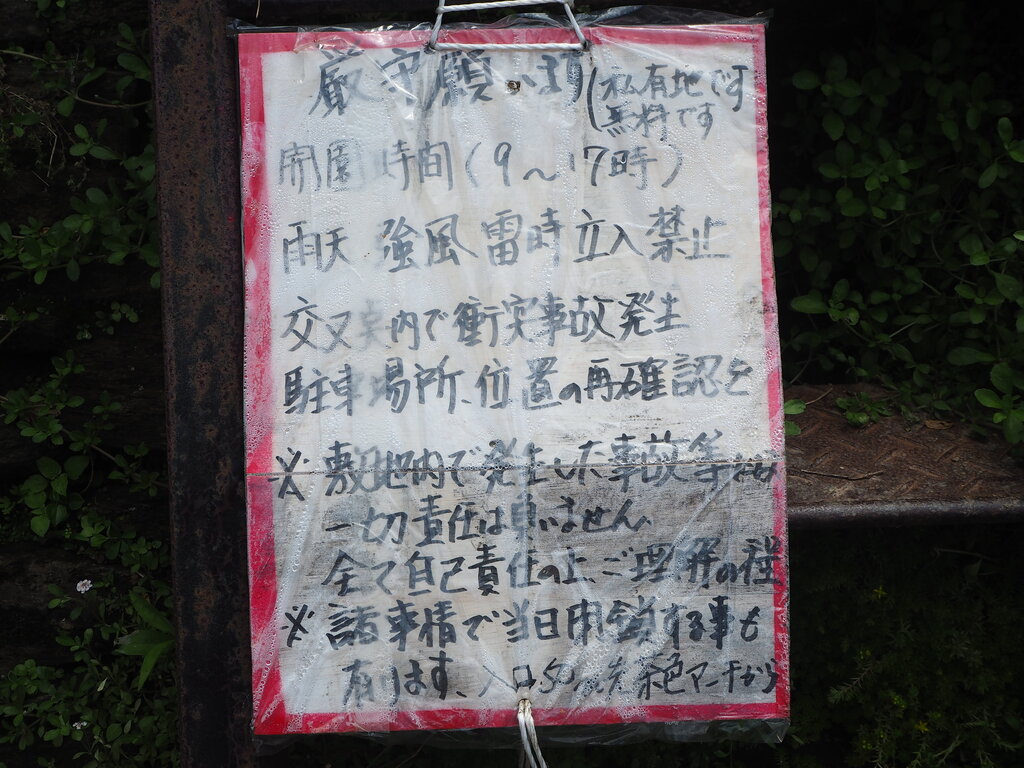 厳守願います(私有地です
無料です
開園時間(9〜17時)
雨天 強風 雷時 立入禁止
交叉 内で衝突事故発生
駐車場所、位置の再確認を
※敷地内で発生した事故等
一切責任は負いません
全て自己責任の上、ご理解の程
※諸事情で当日閉鎖する事も
有ります、入口 マーチから